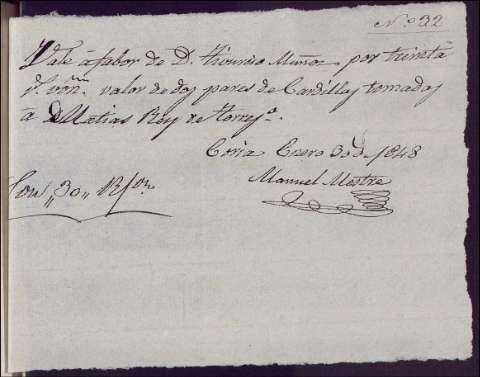 Nº 32
Vale á fabor de D. Tiburcio Muñoz por treinta
rˢ von. valor de dos pares de Cardillas tomadas
á Matias Rey de
Coria Enero 30 de 1848
Manuel Mestre
Son "30" Rˢ von